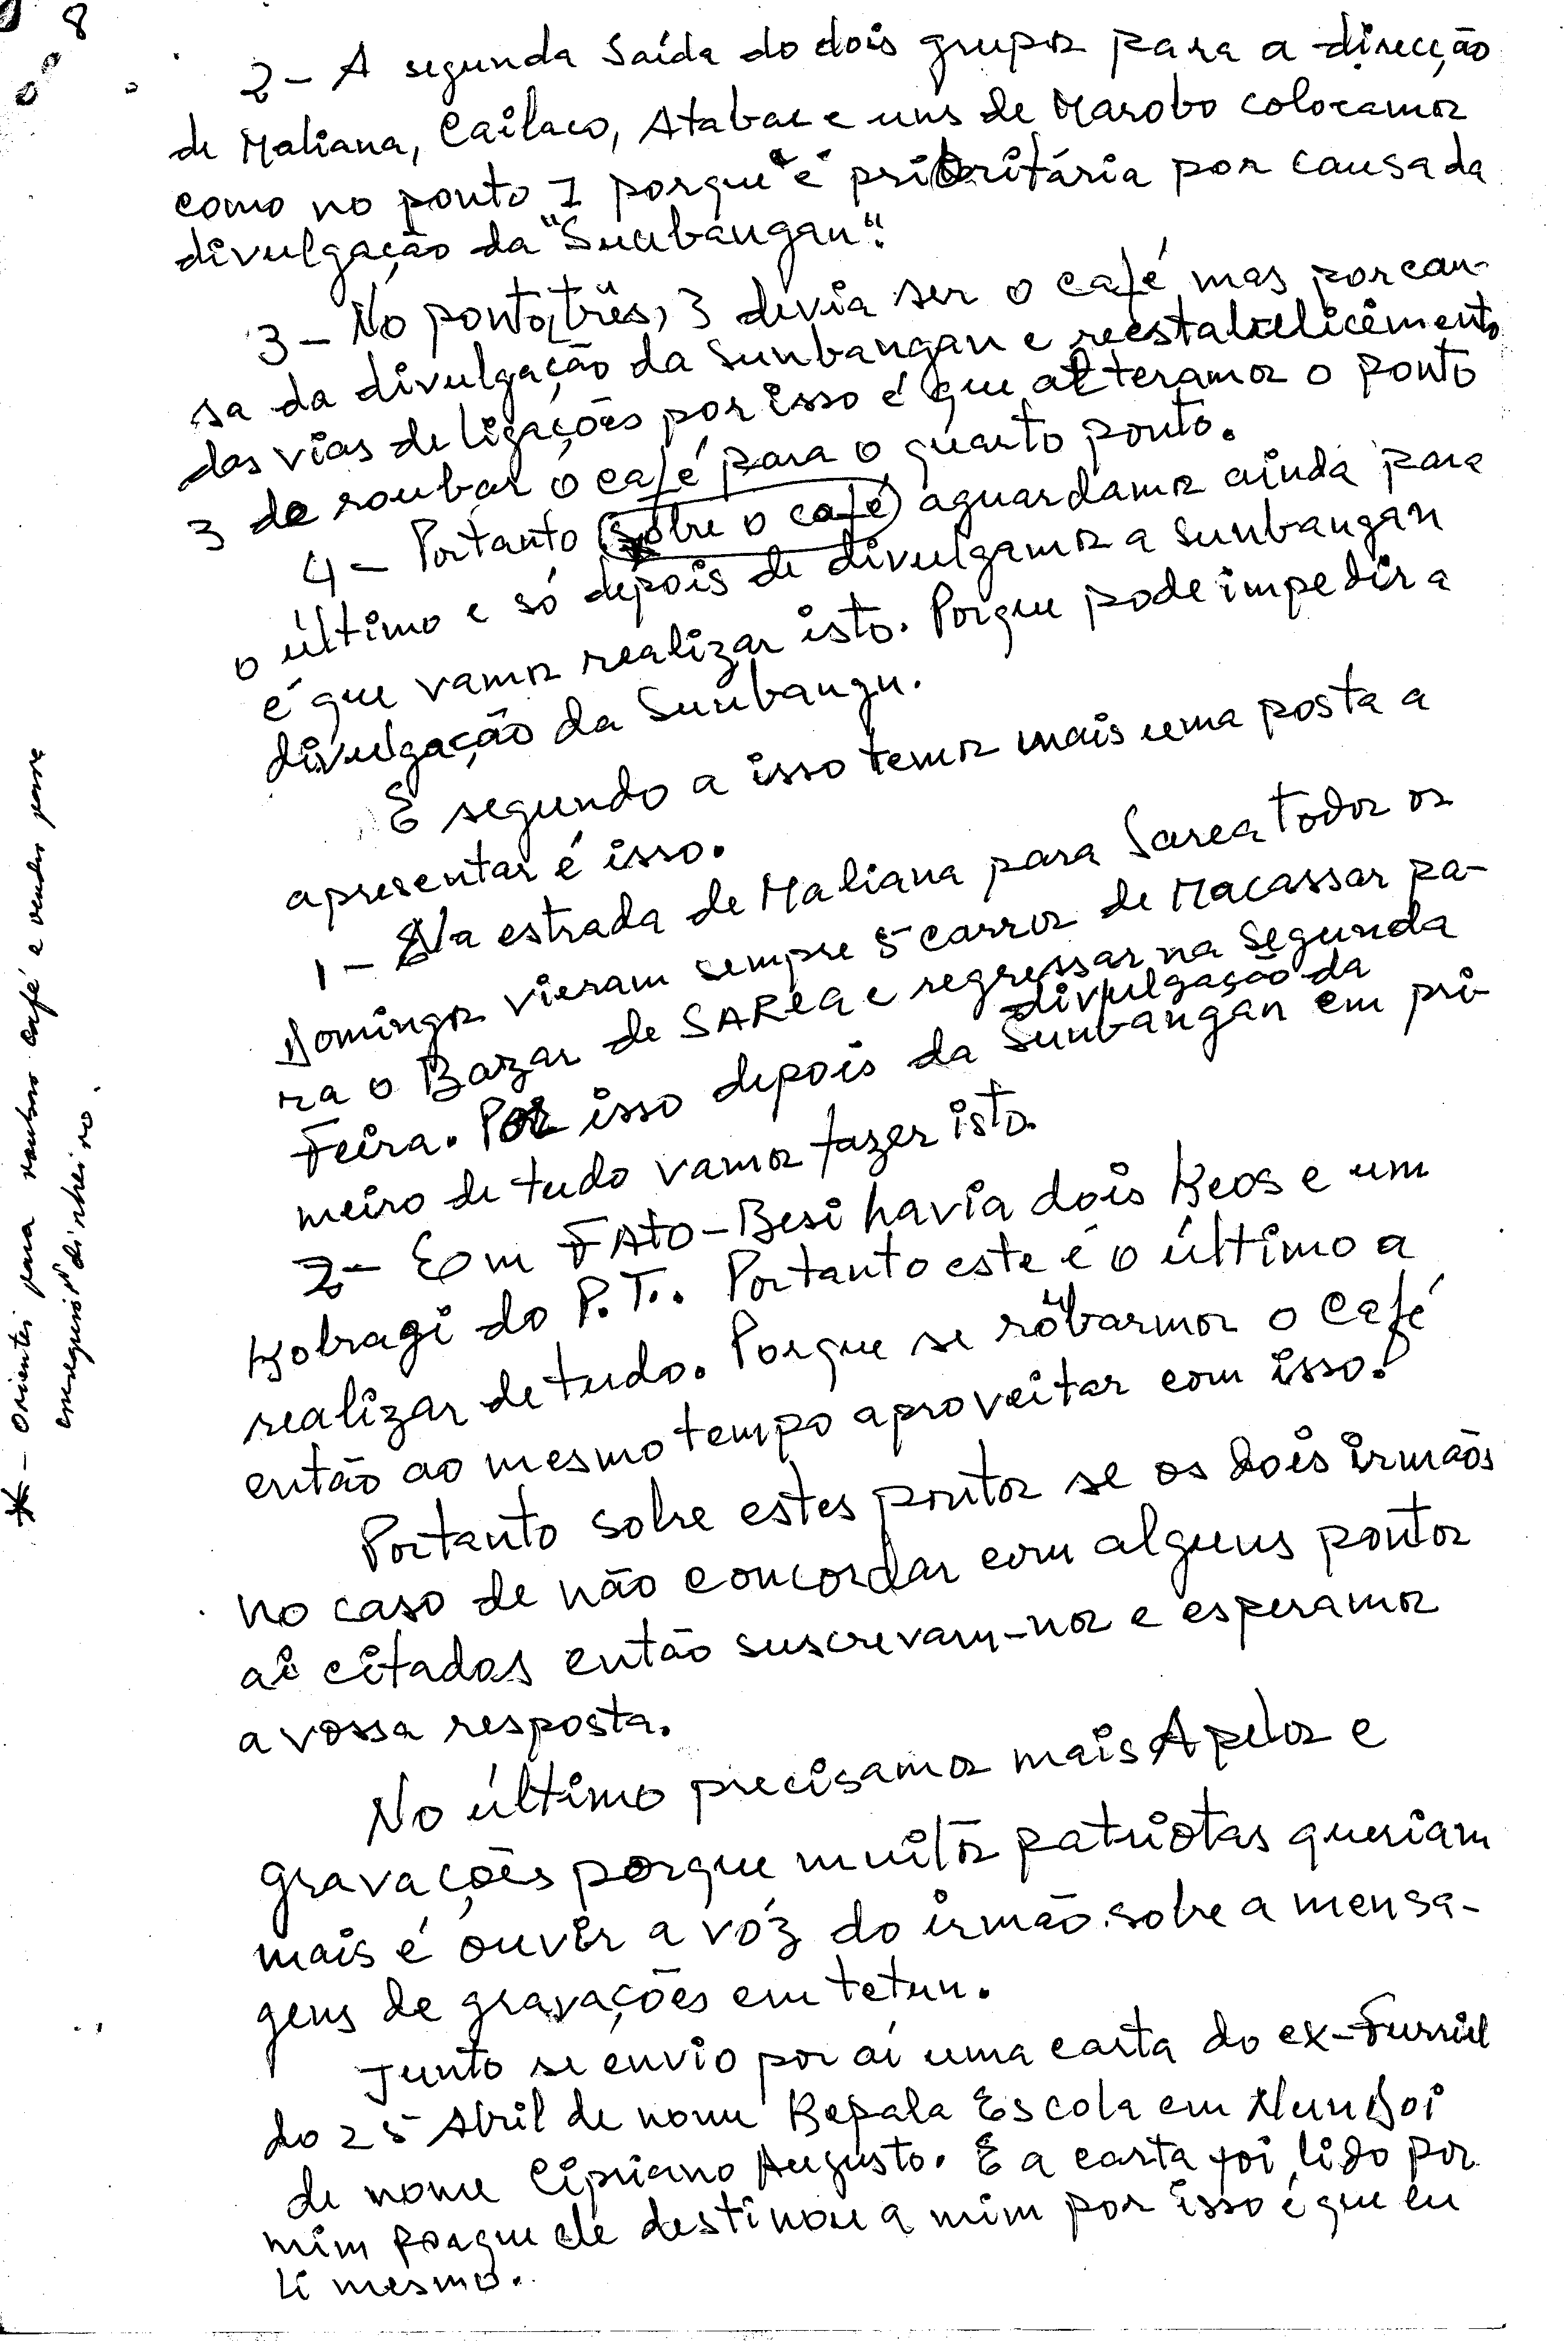 8
2 - A segunda saída do dois grupos para a direcção
de Maliana, Cailaco, Atabae e uns de Marobo colocamos
como no ponto 1 porque é prioritária por causa da
divulgação da "Sunbangan".
3 - No ponto três, 3 devia ser o café mas por cau-
sa da divulgação da Sunbangan e reestabelicimento
das vias de ligações por isso é que alteramos o ponto
3 de roubar o café para o quarto ponto.
4 - Portanto sobre o café aguardamos ainda para
o último e só depois de divulgamos a Sunbangan
é que vamos realizar isto. Porque pode impedir a
divulgação da Sunbangn.
E segundo a isso temos mais uma posta a
apresentar é isso.
1 - Na estrada de Maliana para Sarea todos os
Domingos vieram sempre 5 carros de Macassar pa-
ra o Bazar de SAREA e regressar na Segunda
Feira. Por isso depois da divulgação da Sunbangan em pri-
meiro de tudo vamos fazer isto.
2 - Em FATO-Besi havia dois Beos e um
Kobragi do P.T.. Portanto este é o último a
realizar de tudo. Porque se roubarmos o Café
então ao mesmo tempo aproveitar com isso.
Portanto sobre estes pontos se os dois irmãos
no caso de não concordar com alguns pontos
aí citados então suscrevam-nos e esperamos
a vossa resposta.
No último precisamos mais Apelos e
gravações porque muitos patriotas queriam
mais é ouvir a vóz do irmão sobre a mensa-
gens de gravações em tetun.
Junto se envio por aí uma carta do ex-Furriel
do 25 Abril de nome Bepala Escola em Nunboi
de nome Cipriano Augusto. E a carta foi lido por
mim porque ele destinou a mim por isso é que eu
li mesmo.
* - Orientei para roubar café e vender para
conseguir dinheiro.